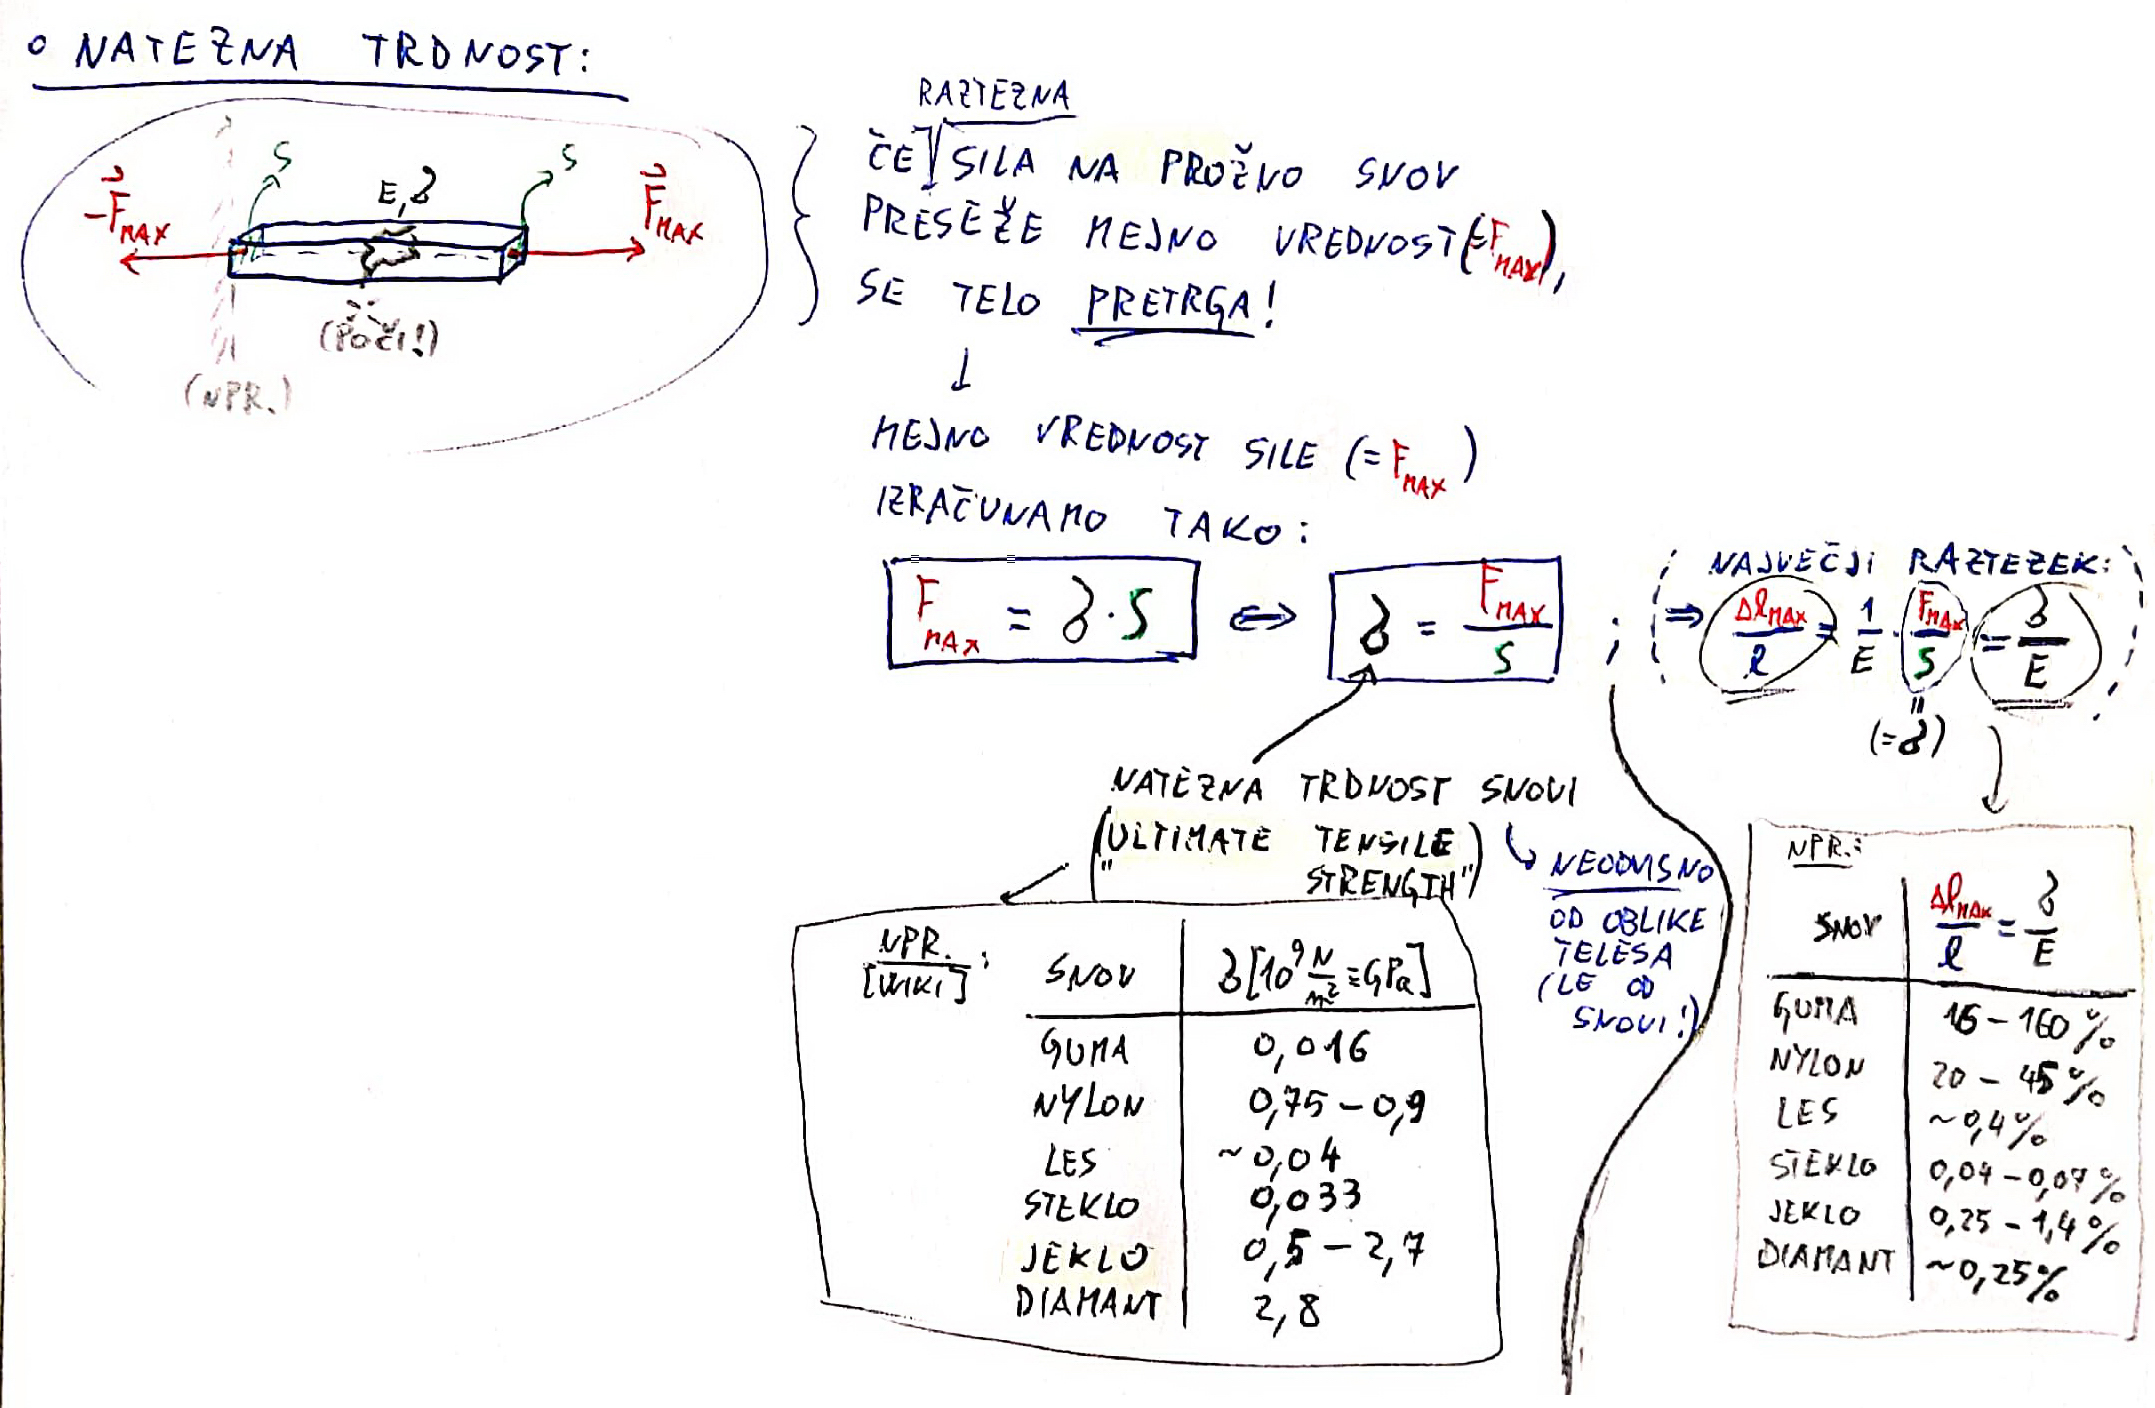 ° NATEZNA TRDNOST:
-F⃗MAX
S
E, δ
S
F⃗MAX
(POČI!)
(NPR.)
RAZTEZNA
ČE SILA NA PROŽNO SNOV
PRESEŽE MEJNO VREDNOST (=FMAX),
SE TELO PRETRGA!
↓
MEJNO VREDNOST SILE (= FMAX)
IZRAČUNAMO TAKO:
FMAX = δ · S ⇔ δ = FMAX / S ;
NAJVEČJI RAZTEZEK:
⇒ ΔlMAX / l = 1/E · FMAX / S = δ / E
(= δ)
NATEZNA TRDNOST SNOVI
("ULTIMATE TENSILE
STRENGTH")
NEODVISNO
OD OBLIKE
TELESA
(LE OD
SNOVI!)
NPR. :
[WIKI]
SNOV δ [10⁹ N/m² ≡ GPa]
GUMA 0,016
NYLON 0,75 – 0,9
LES ~ 0,04
STEKLO 0,033
JEKLO 0,5 – 2,7
DIAMANT 2,8
NPR.:
SNOV ΔlMAX / l = δ / E
GUMA 16 – 160 %
NYLON 20 – 45 %
LES ~0,4 %
STEKLO 0,04 – 0,07 %
JEKLO 0,25 – 1,4 %
DIAMANT ~0,25 %